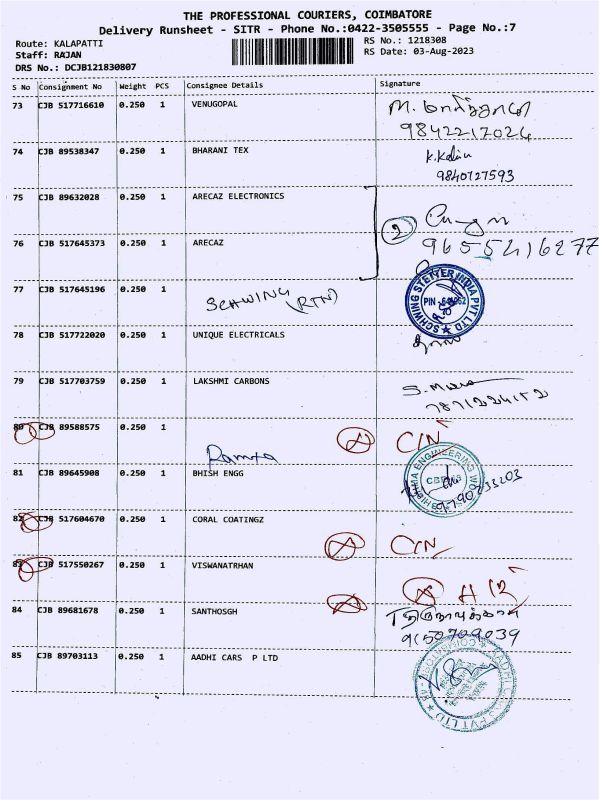 THE PROFESSIONAL COURIERS, COIMBATORE
Delivery Runsheet - SITR - Phone No.:0422-3505555 - Page No.:7
Route: KALAPATTI
RS No.: 1218308
Staff: RAJAN
RS Date: 03-Aug-2023
DRS No.: DCJB121830807
S No Consignment No Weight PCS Consignee Details Signature
73 CJB 517716610 0.250 1 VENUGOPAL
9842217024
74 CJB 89538347 0.250 1 BHARANI TEX
9840727593
75 CJB 89632028 0.250 1 ARECAZ ELECTRONICS
2
9655216277
76 CJB 517645373 0.250 1 ARECAZ
77 CJB 517645196 0.250 1 SCHWING (RTN)
SCHWING STETTER INDIA PVT LTD
78 CJB 517722020 0.250 1 UNIQUE ELECTRICALS
79 CJB 517703759 0.250 1 LAKSHMI CARBONS
7871224152
80 CJB 89588575 0.250 1
C/N
81 CJB 89645908 0.250 1 BHISH ENGG
9790233203
82 CJB 517604670 0.250 1 CORAL COATINGZ
C/N
83 CJB 517550267 0.250 1 VISWANATRHAN
84 CJB 89681678 0.250 1 SANTHOSGH
9150709039
85 CJB 89703113 0.250 1 AADHI CARS P LTD